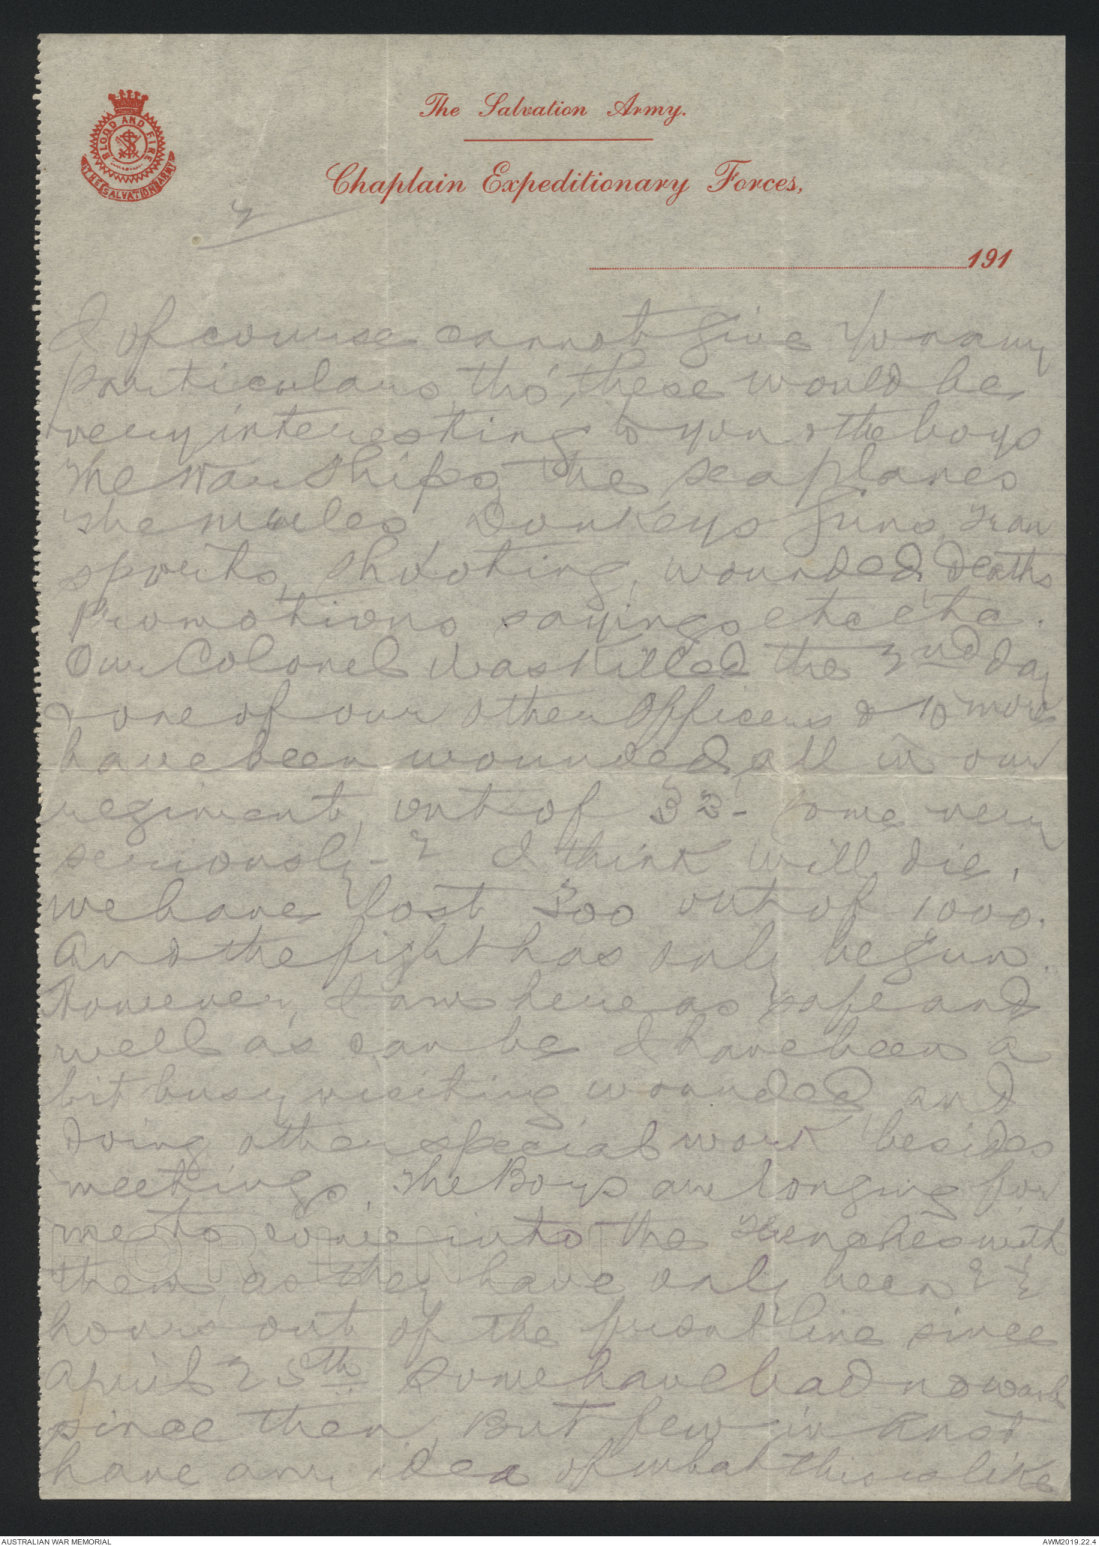 The Salvation Army.
Chaplain Expeditionary Forces,
BLOOD AND FIRE
THE SALVATION ARMY
2
191
I of course cannot give you any
particulars, tho', these would be
very interesting to you & the boys
The War Ships, the sea planes
the mules Donkeys Guns, Tran
sports, shooting, wounded, Deaths
Promotions sayings etc etc.
Our Colonel was killed the 2nd day
& one of our other Officers & 10 more
have been wounded, all in our
regiment, out of 32- some very
seriously - 2 I think will die.
we have lost 300 out of 1000.
And the fight has only begun.
However, I am here as safe and
well as can be I have been a
bit busy visiting wounded, and
doing other special work besides
meetings. The Boys are longing for
me to come into the trenches with
them as they have only been 2 ½
hours out of the front line since
April 25th Some have had no wash
since then, But few in Aust
have any idea of what this is like
AUSTRALIAN WAR MEMORIAL
AWM2019.22.4